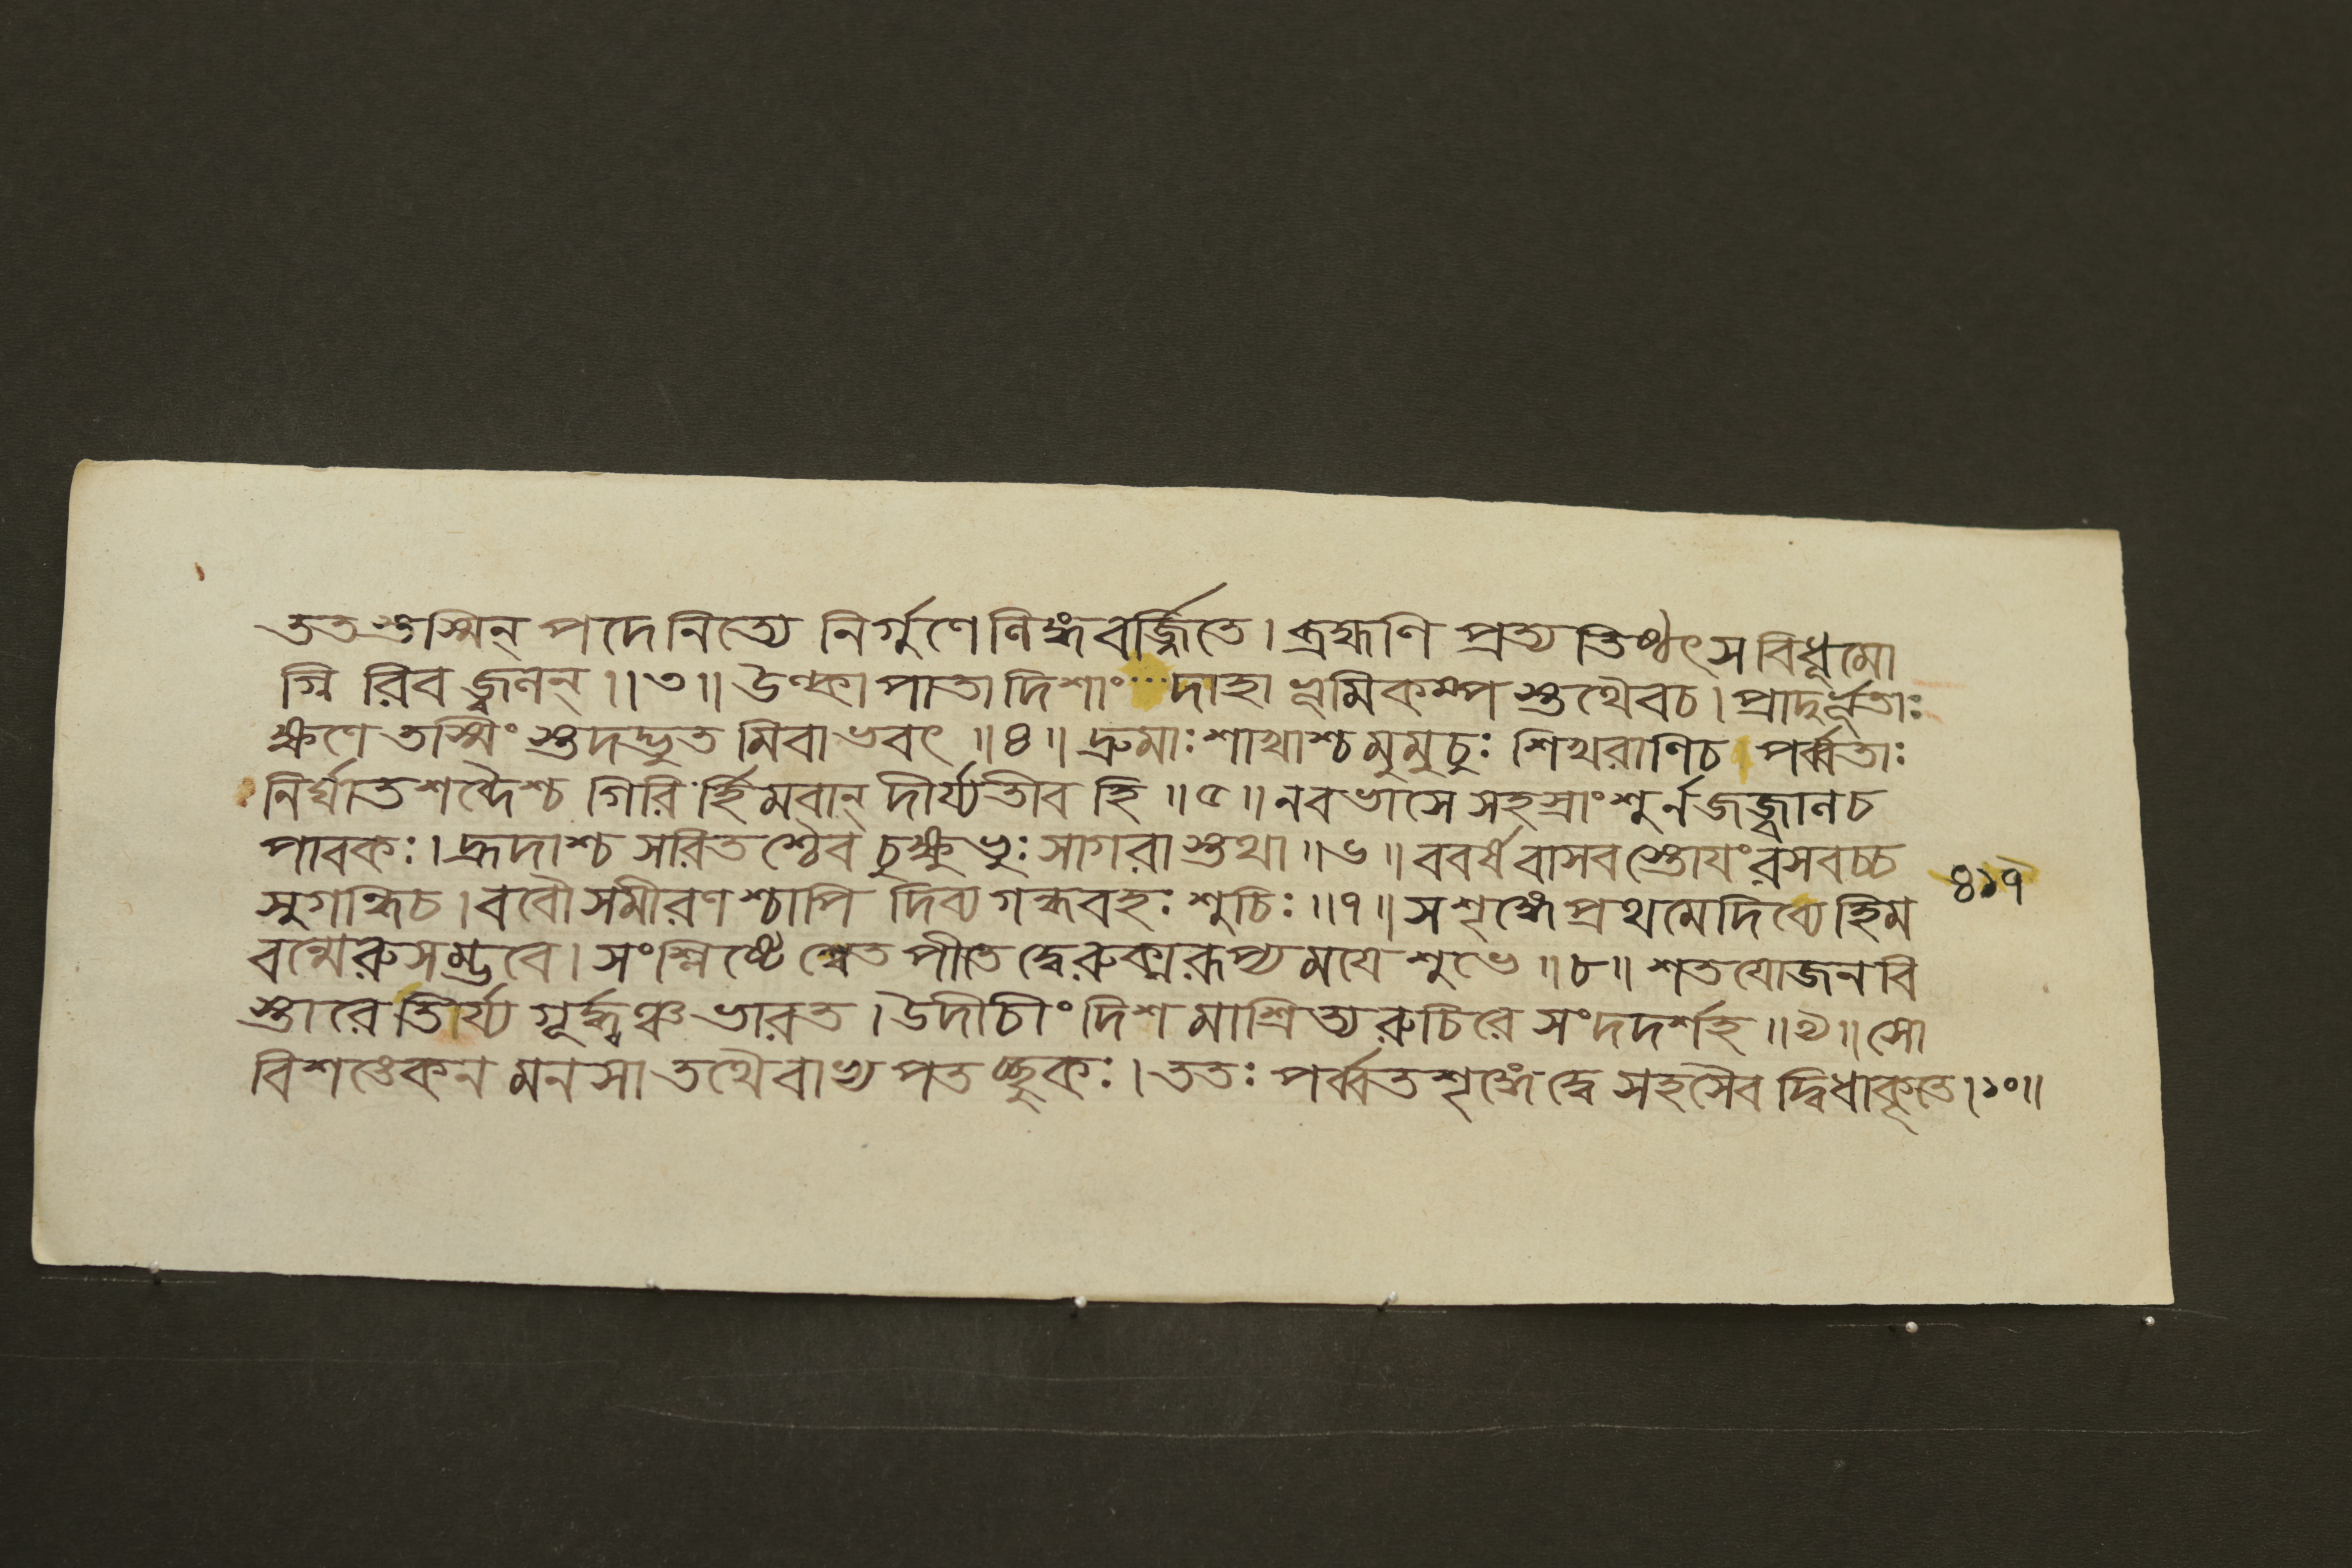 ততস্তস্মিন্ পদেনিত্যে নির্গুণেলিঙ্গবর্জ্জিতে। ব্রহ্মণি প্রত্যতিষ্ঠৎসবিধূমো
গ্নি রিবজ্বলন্॥৩॥ উল্কাপাতাদিশাং দাহাভূমিকম্পস্তথৈবচ। প্রাদুর্ভূতাঃ
ক্ষণেতস্মিংস্তদদ্ভুতমিবাভবৎ॥৪॥ দ্রুমাঃশাখাশ্চমুমুচুঃ শিখরাণিচ পর্ব্বতাঃ
নির্ঘাতশব্দৈশ্চ গিরির্হিমবান্ দীর্য্যতীব হি॥৫॥ নবভাসে সহস্রাংশুর্নজজ্বালনচ
পাবকঃ। হ্রদাশ্চ সরিতশ্চৈব চুক্ষুভুঃ সাগরাস্তথা॥৬॥ ববর্ষবাসবস্তোয়ংরসবচ্চ
সুগন্ধিচ। ববৌসমীরণশ্চাপি দিব্যগন্ধবহঃ শুচিঃ॥৭॥ সশৃঙ্গেপ্রথমেদিব্যেহিম
বন্মেরুসম্ভবে। সংশ্লিষ্টেশ্বেতপীতেদ্বেরুক্মরূপ্যময়ে শুভে॥৮॥ শতযোজনবি
স্তারেতির্য্যগূর্দ্ধ্বঞ্চভারত। উদীচীং দিশমাশ্রিত্যরুচিরে সংদদর্শহ॥৯॥ সো
বিশঙ্কেনমনসাতথৈবাভ্যপতচ্ছুকঃ। ততঃ পর্ব্বতশৃঙ্গেদ্বে সহসৈবদ্বিধাকৃতে।১০॥
৪১৭